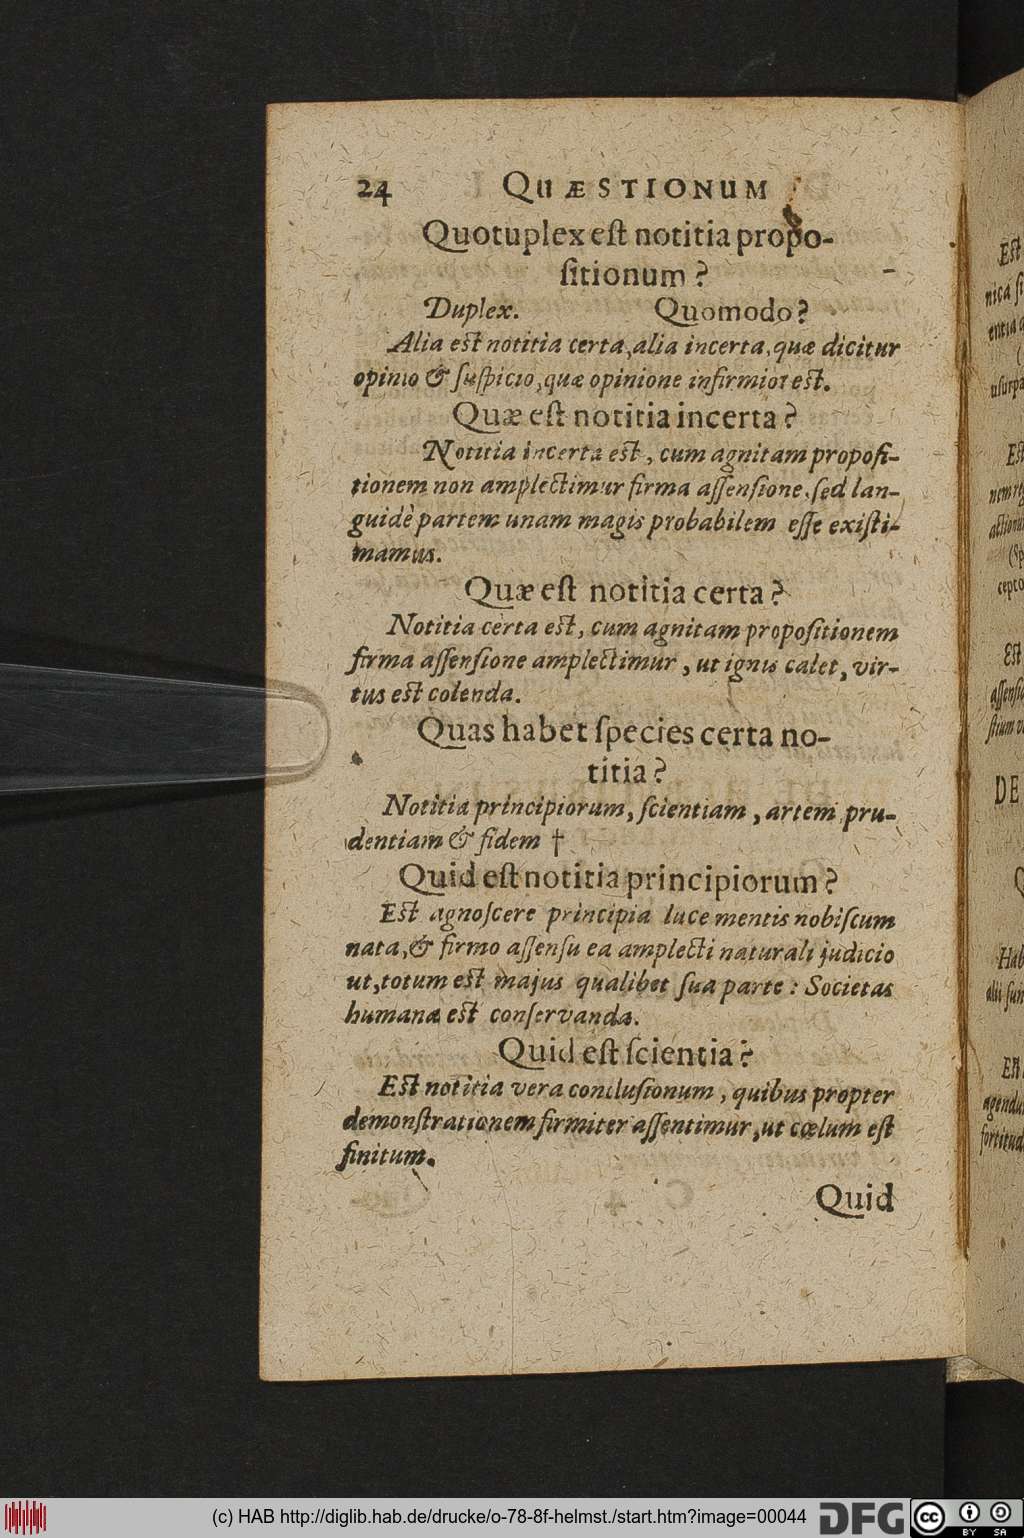 24 QUÆSTIONUM
Quotuplex eſt notitia propo-
ſitionum?
Duplex. Quomodo?
Alia eſt notitia certa, alia incerta, quæ dicitur
opinio & ſuſpicio, quæ opinione infirmior eſt.
Quæ eſt notitia incerta?
Notitia incerta eſt, cum agnitam propoſi-
tionem non amplectimur firma aſſenſione, ſed lan-
guidè partem unam magis probabilem eſſe exiſti-
mamus.
Quæ eſt notitia certa?
Notitia certa eſt, cum agnitam propoſitionem
firma aſſenſione amplectimur, ut ignis calet, vir-
tus eſt colenda.
Quas habet ſpecies certa no-
titia?
Notitia principiorum, ſcientiam, artem, pru-
dentiam & fidem †
Quid eſt notitia principiorum?
Eſt agnoſcere principia luce mentis nobiſcum
nata, & firmo aſſenſu ea amplecti naturali judicio
ut, totum eſt majus qualibet ſua parte: Societas
humana eſt conſervanda.
Quid eſt ſcientia?
Eſt notitia vera concluſionum, quibus propter
demonſtrationem firmiter aſſentimur, ut cœlum eſt
finitum.
Quid
(c) HAB http://diglib.hab.de/drucke/o-78-8f-helmst./start.htm?image=00044
DFG
cc BY SA